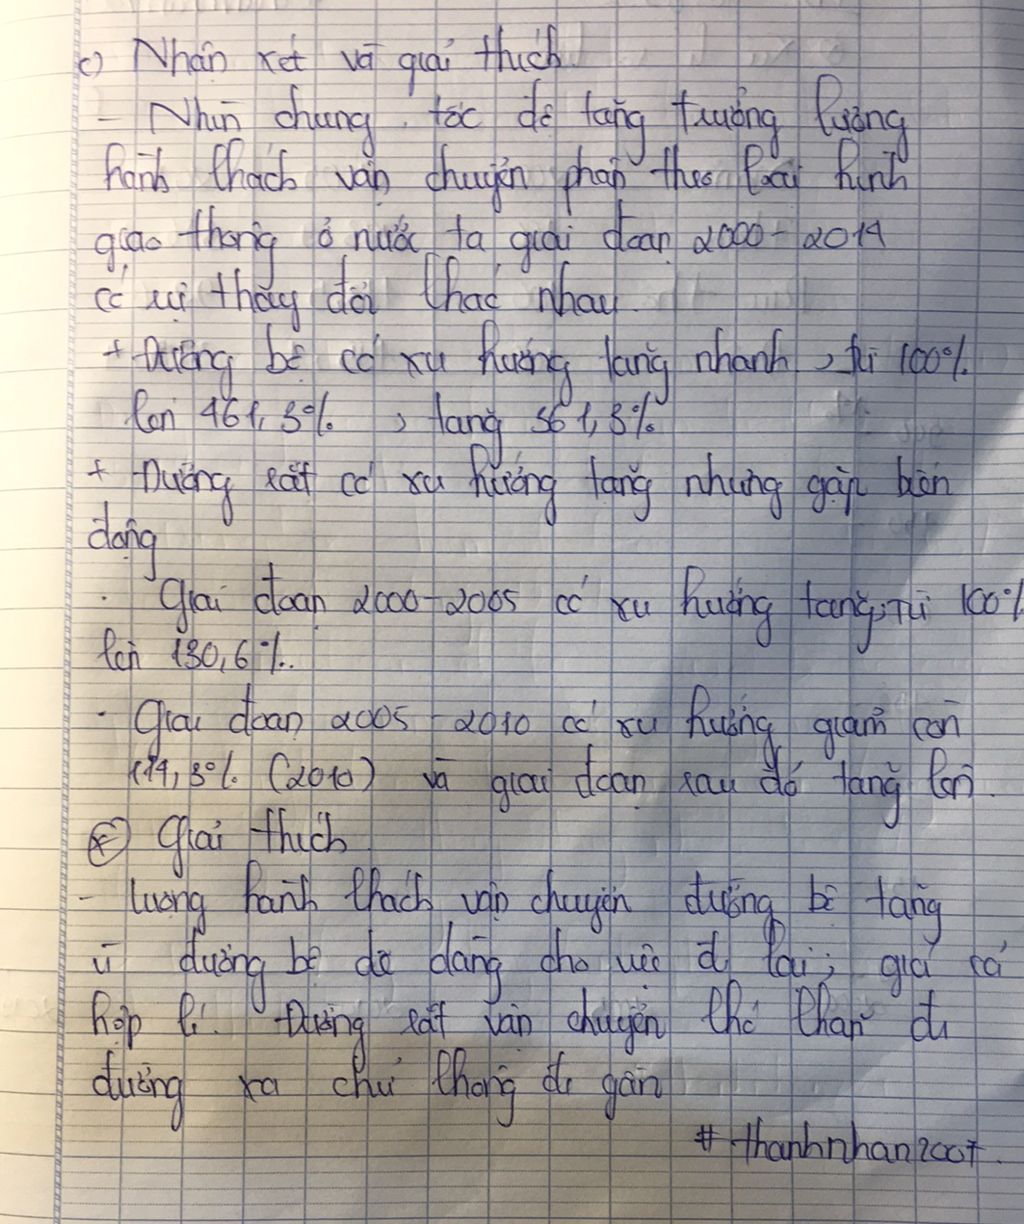 c) Nhận xét và giải thích
- Nhìn chung, tốc độ tăng trưởng lượng
hành khách vận chuyển phân theo loại hình
giao thông ở nước ta giai đoạn 2000-2014
có sự thay đổi khác nhau.
+ Đường bộ có xu hướng tăng nhanh, từ 100%
lên 461,3%, tăng 361,3%
+ Đường sắt có xu hướng tăng nhưng gặp biến
động
· Giai đoạn 2000-2005 có xu hướng tăng, từ 100%
lên 130,6%.
· Giai đoạn 2005-2010 có xu hướng giảm còn
114,3% (2010) và giai đoạn sau đó tăng lên.
* Giải thích
- lượng hành khách vận chuyển đường bộ tăng
vì đường bộ dễ dàng cho việc đi lại, giá cả
hợp lí. Đường sắt vận chuyển khó khăn đi
đường xa chứ không đi gần
# thanhnhan2007.